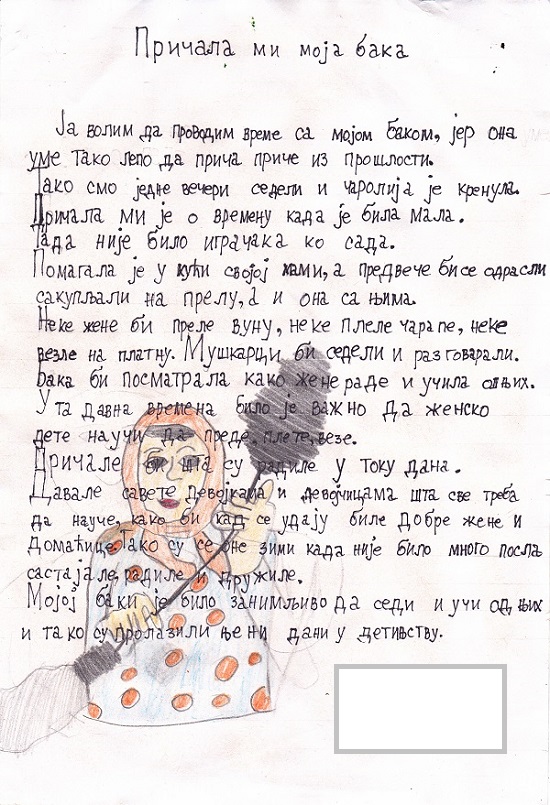 Причала ми моја бака
Ја волим да проводим време са мојом баком, јер она
уме тако лепо да прича приче из прошлости.
Тако смо једне вечери седели и чаролија је кренула.
Причала ми је о времену када је била мала.
Тада није било играчака ко сада.
Помагала је у кући својој мами, а предвече би се одрасли
сакупљали на прелу, а и она са њима.
Неке жене би преле вуну, неке плеле чарапе, неке
везле на платну. Мушкарци би седели и разговарали.
Бака би посматрала како жене раде и учила од њих.
У та давна времена било је важно да женско
дете научи да преде, плете, везе.
Причале би шта су радиле у току дана.
Давале савете девојкама и девојчицама шта све треба
да науче, како би кад се удају биле добре жене и
домаћице. Тако су се оне зими када није било много посла
састајале, радиле и дружиле.
Мојој баки је било занимљиво да седи и учи од њих
и тако су пролазили њени дани у детињству.